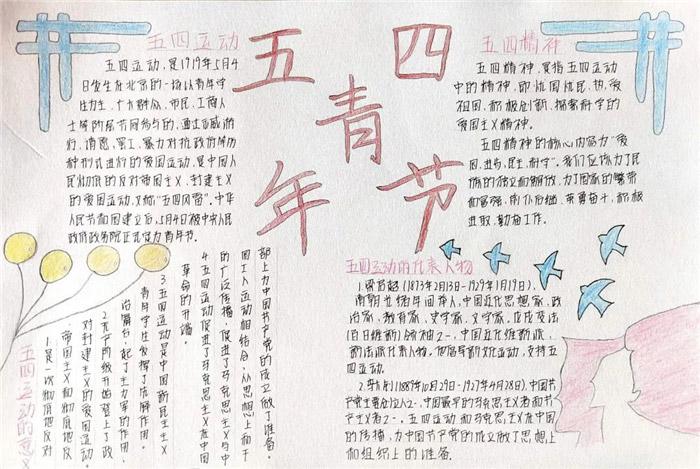 五四青年节
五四运动
五四运动,是1919年5月4
日发生在北京的一场以青年学
生为主,广大群众、市民、工商人
士等阶层共同参与的,通过示威游
行、请愿、罢工、暴力对抗政府等多
种形式进行的爱国运动,是中国人
民彻底的反对帝国主义、封建主义
的爱国运动,又称"五四风雷"。中华
人民共和国建立后,5月4日被中央人民
政府政务院正式定为青年节。
五四精神
五四精神,是指五四运动
中的精神,即忧国忧民、热爱
祖国,积极创新,探索科学的
爱国主义精神。
五四精神的核心内容为"爱
国、进步、民主、科学"。我们应该为了民
族的独立和解放,为了国家的繁荣
和富强,前仆后继,英勇奋斗,积极
进取,勤奋工作。
五四运动的意义
1.是一次彻底地反对
帝国主义和彻底地反
对封建主义的爱国运动。
2.无产阶级开始登上了政
治舞台,起了主力军的作用。
青年学生发挥了先锋作用。
3.五四运动是中国新民主主义
革命的开端。
4.五四运动促进了马克思主义在中国
的广泛传播,促进了马克思主义与中
国工人运动相结合,从思想上和干
部上为中国共产党的成立做了准备。
五四运动的代表人物
1.梁启超(1873年2月13日-1929年1月19日),
清朝光绪年间举人,中国近代思想家、政
治家、教育家、史学家、文学家。戊戌变法
(百日维新)领袖之一、中国近代维新派、
新法派代表人物。他倡导新文化运动,支持五
四运动。
2.李大钊(1889年10月29日-1927年4月28日),中国共
产党主要创始人之一,中国最早的马克思主义者和共
产主义者之一,五四运动和马克思主义在中国
的传播,为中国共产党的成立做了思想上
和组织上的准备。